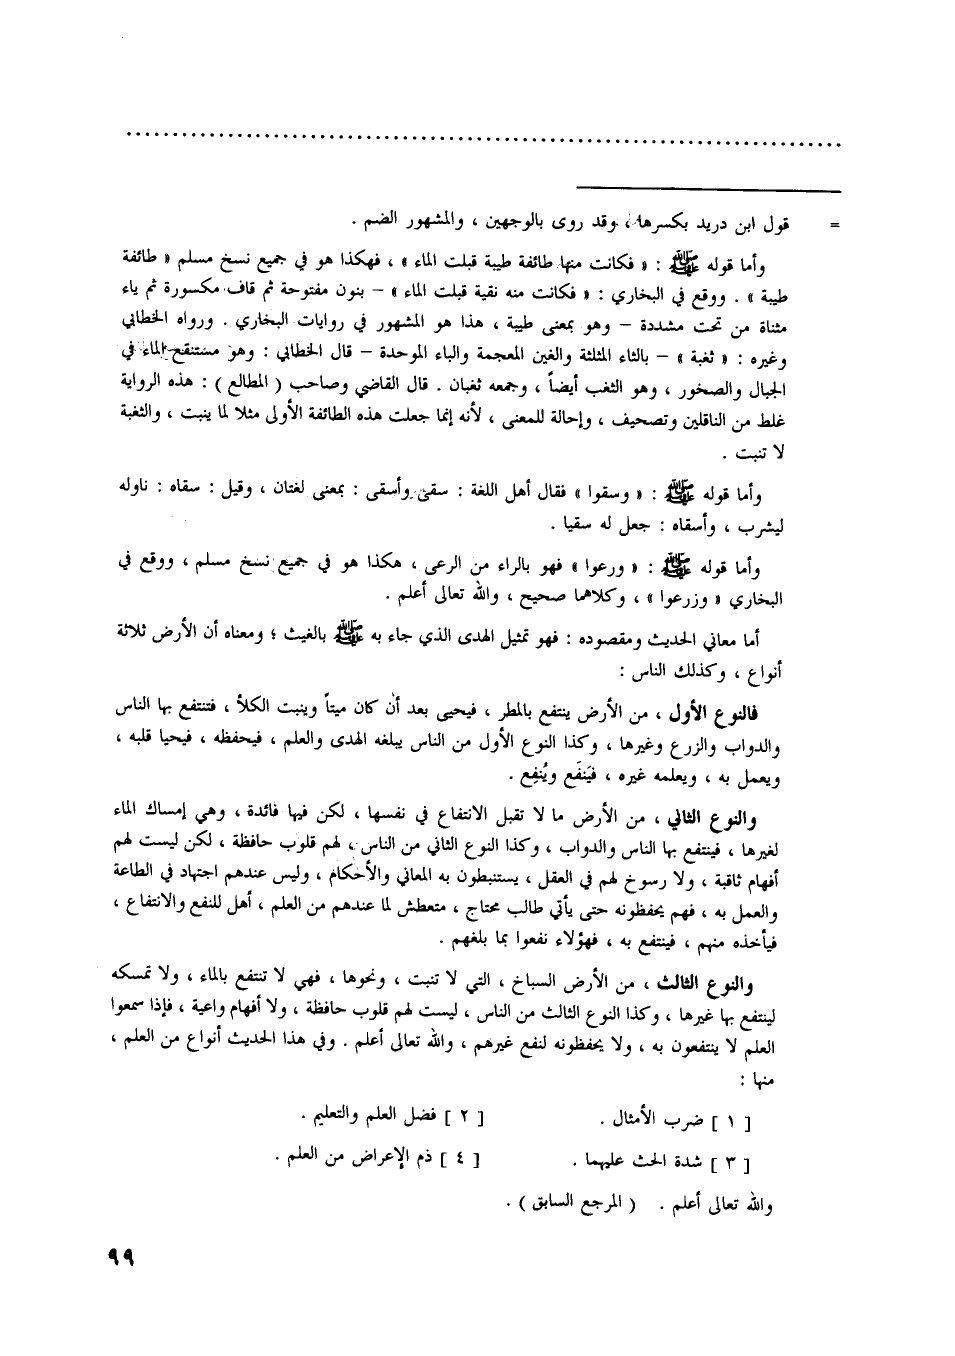 = قول ابن دريد بكسرها ، وقد روى بالوجهين ، والمشهور الضم .
وأما قوله ﷺ : « فكانت منها طائفة طيبة قبلت الماء » ، فهكذا هو في جميع نسخ مسلم « طائفة
طيبة » . ووقع في البخاري : « فكانت منه نقية قبلت الماء » – بنون مفتوحة ثم قاف مكسورة ثم ياء
مثناة من تحت مشددة – وهو بمعنى طيبة ، هذا هو المشهور في روايات البخاري . ورواه الخطابي
وغيره : « ثغبة » – بالثاء المثلثة والغين المعجمة والباء الموحدة – قال الخطابي : وهو مستنقع الماء في
الجبال والصخور ، وهو الثغب أيضاً ، وجمعه ثغبان . قال القاضي وصاحب ( المطالع ) : هذه الرواية
غلط من الناقلين وتصحيف ، وإحالة للمعنى ، لأنه إنما جعلت هذه الطائفة الأولى مثلا لما ينبت ، والثغبة
لا تنبت .
وأما قوله ﷺ : « وسقوا » فقال أهل اللغة : سقى وأسقى : بمعنى لغتان ، وقيل : سقاه : ناوله
ليشرب ، وأسقاه : جعل له سقيا .
وأما قوله ﷺ : « ورعوا » فهو بالراء من الرعى ، هكذا هو في جميع نسخ مسلم ، ووقع في
البخاري « وزرعوا » ، وكلاهما صحيح ، والله تعالى أعلم .
أما معاني الحديث ومقصوده : فهو تمثيل الهدى الذي جاء به ﷺ بالغيث ؛ ومعناه أن الأرض ثلاثة
أنواع ، وكذلك الناس :
فالنوع الأول ، من الأرض ينتفع بالمطر ، فيحيى بعد أن كان ميتاً وينبت الكلأ ، فتنتفع بها الناس
والدواب والزرع وغيرها ، وكذا النوع الأول من الناس يبلغه الهدى والعلم ، فيحفظه ، فيحيا قلبه ،
ويعمل به ، ويعلمه غيره ، فيَنفَع ويُنفِع .
والنوع الثاني ، من الأرض ما لا تقبل الانتفاع في نفسها ، لكن فيها فائدة ، وهي إمساك الماء
لغيرها ، فينتفع بها الناس والدواب ، وكذا النوع الثاني من الناس ، لهم قلوب حافظة ، لكن ليست لهم
أفهام ثاقبة ، ولا رسوخ لهم في العقل ، يستنبطون به المعاني والأحكام ، وليس عندهم اجتهاد في الطاعة
والعمل به ، فهم يحفظونه حتى يأتي طالب محتاج ، متعطش لما عندهم من العلم ، أهل للنفع والانتفاع ،
فيأخذه منهم ، فينتفع به ، فهؤلاء نفعوا بما بلغهم .
والنوع الثالث ، من الأرض السباخ ، التي لا تنبت ، ونحوها ، فهي لا تنتفع بالماء ، ولا تمسكه
لينتفع بها غيرها ، وكذا النوع الثالث من الناس ، ليست لهم قلوب حافظة ، ولا أفهام واعية ، فإذا سمعوا
العلم لا ينتفعون به ، ولا يحفظونه لنفع غيرهم ، والله تعالى أعلم . وفي هذا الحديث أنواع من العلم ،
منها :
[ ١ ] ضرب الأمثال . [ ٢ ] فضل العلم والتعليم .
[ ٣ ] شدة الحث عليهما . [ ٤ ] ذم الإعراض من العلم .
والله تعالى أعلم . ( المرجع السابق ) .
٩٩